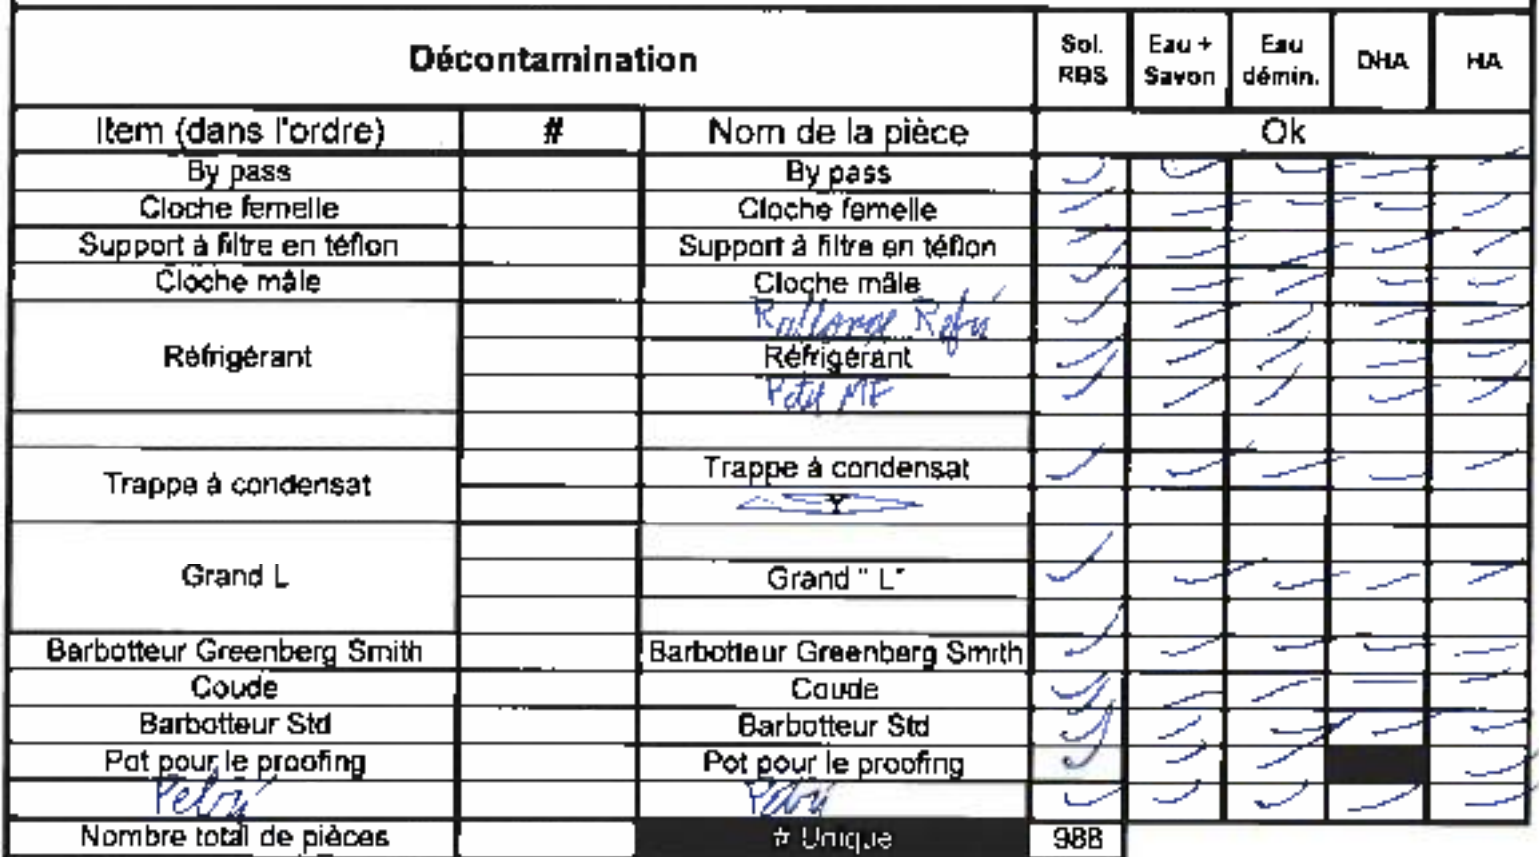 Décontamination Sol. RBS Eau + Savon Eau démin. DHA HA
Item (dans l'ordre) # Nom de la pièce Ok
By pass By pass
Cloche femelle Cloche femelle
Support à filtre en téflon Support à filtre en téflon
Cloche mâle Cloche mâle
Réfrigérant Réfrigérant
Trappe à condensat Trappe à condensat
Grand L Grand " L"
Barbotteur Greenberg Smith Barbotteur Greenberg Smith
Coude Coude
Barbotteur Std Barbotteur Std
Pot pour le proofing Pot pour le proofing
Nombre total de pièces # Unique 988